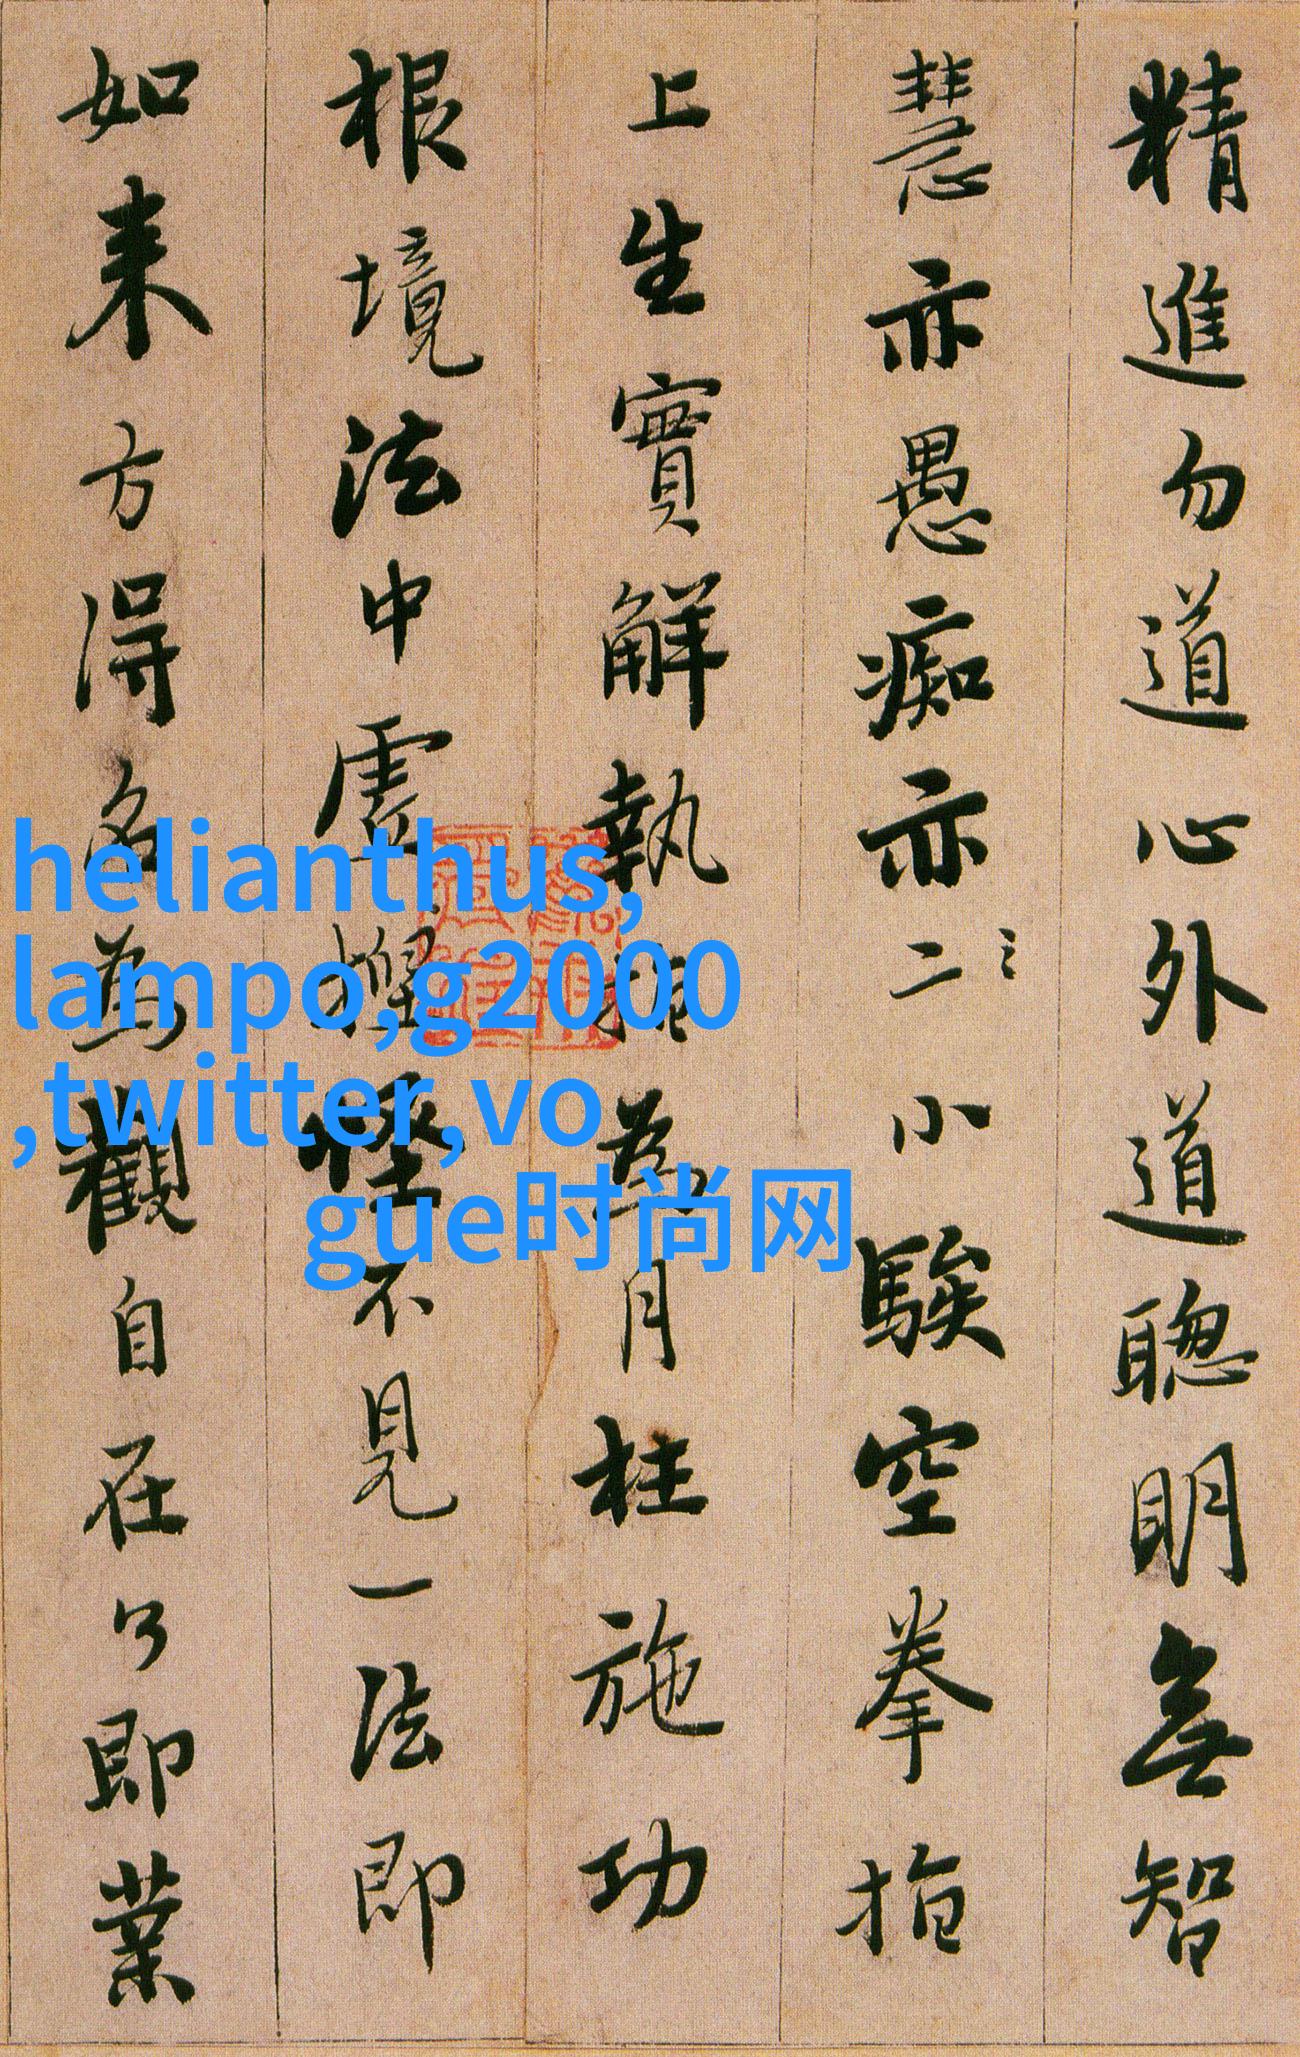 精進勿道心外道聰明無智
慧亦愚痴亦二小騃空拳指
上生實解執指為月枉施功
根境法中虛捏怪不見一法即
如來方得名為觀自在了即業
helianthus,
lampo,g2000
,twitter,vo
gue时尚网